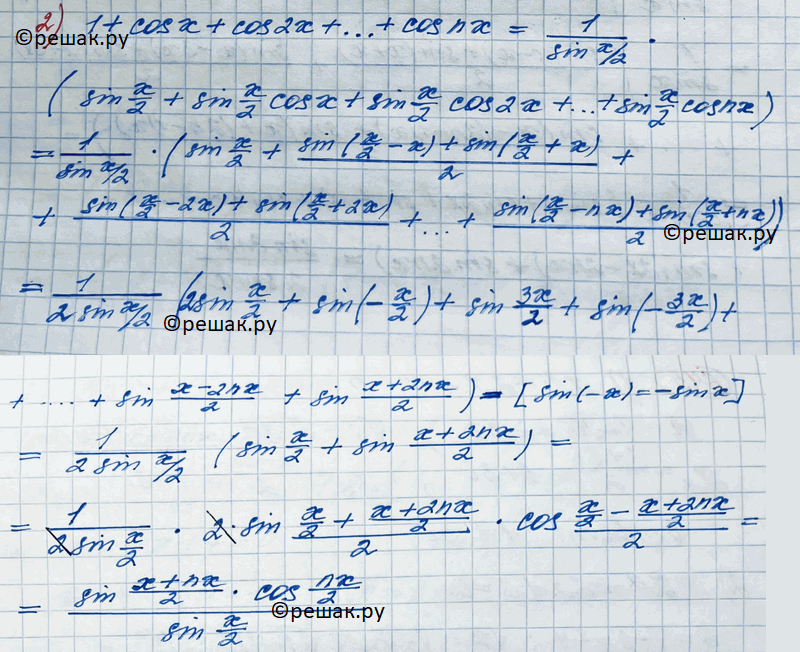 2) 1 + cos x + cos 2x + ... + cos nx = 1/(sin x/2) ·
©решак.ру
( sin x/2 + sin x/2 cos x + sin x/2 cos 2x + ... + sin x/2 cos nx )
= 1/(sin x/2) · ( sin x/2 + (sin(x/2 - x) + sin(x/2 + x))/2 +
+ (sin(x/2 - 2x) + sin(x/2 + 2x))/2 + ... + (sin(x/2 - nx) + sin(x/2 + nx))/2 )
©решак.ру
= 1/(2 sin x/2) (2 sin x/2 + sin(-x/2) + sin 3x/2 + sin(-3x/2) +
©решак.ру
+ .... + sin (x-2nx)/2 + sin (x+2nx)/2 ) = [sin(-x) = -sin x]
= 1/(2 sin x/2) ( sin x/2 + sin (x+2nx)/2 ) =
= 1/(2 sin x/2) · 2 · sin (x/2 + (x+2nx)/2)/2 · cos (x/2 - (x+2nx)/2)/2 =
= (sin (x+nx)/2 · cos nx/2)/(sin x/2)
©решак.ру